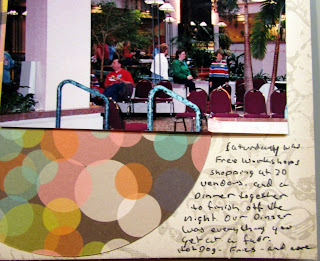 Saturday was
Free workshops
shopping at 20
vendors. and a
Dinner together
to finish off the
night Our Dinner
was everything you
get at a fair.
Hotdog. Fries. and more